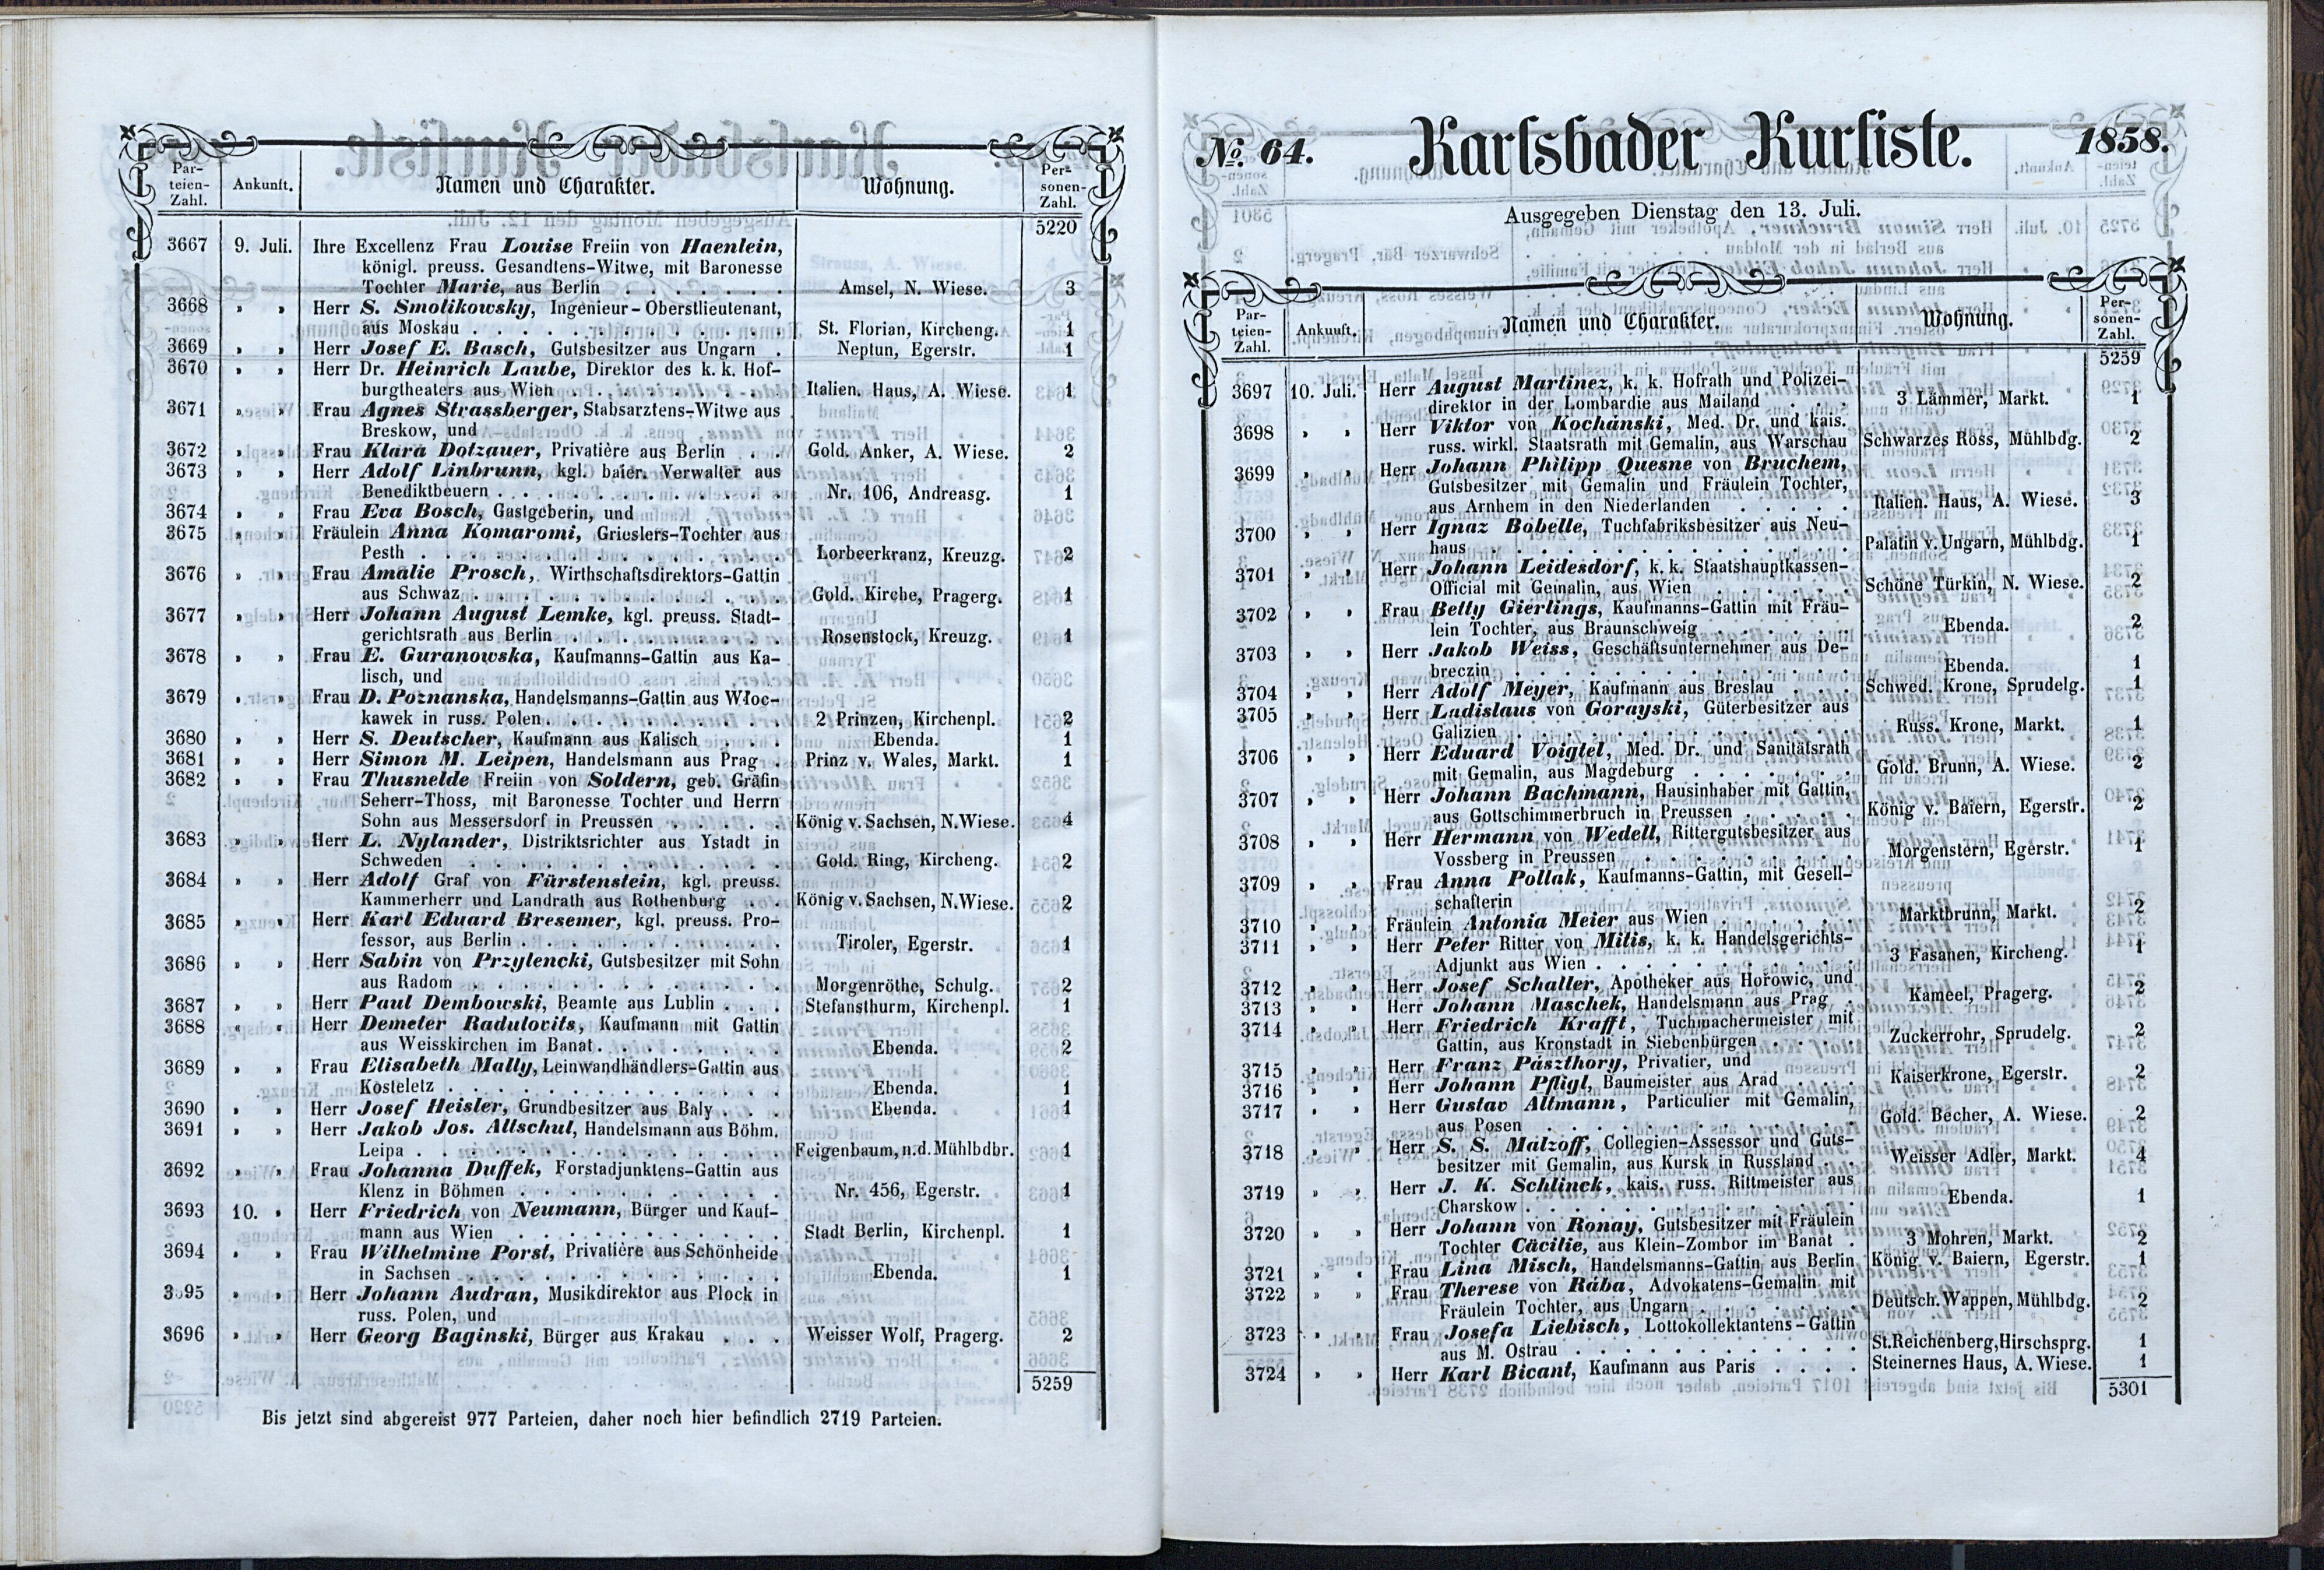 Par-
teien-
Zahl.
Ankunft.
Namen und Charakter.
Wohnung.
Per-
sonen-
Zahl.
5220
3667 9. Juli. Ihre Excellenz Frau Louise Freiin von Haenlein,
königl. preuss. Gesandtens-Witwe, mit Baronesse
Tochter Marie, aus Berlin . . . . . . . Amsel, N. Wiese. 3
3668 » » Herr S. Smolikowsky, Ingenieur-Oberstlieutenant,
aus Moskau . . . . . . . . . . . . St. Florian, Kircheng. 1
3669 » » Herr Josef E. Basch, Gutsbesitzer aus Ungarn . Neptun, Egerstr. 1
3670 » » Herr Dr. Heinrich Laube, Direktor des k. k. Hof-
burgtheaters aus Wien . . . . . . . . . Italien. Haus, A. Wiese. 1
3671 » Frau Agnes Strassberger, Stabsarztens-Witwe aus
Breskow, und
3672 » » Frau Klara Dotzauer, Privatière aus Berlin . . Gold. Anker, A. Wiese. 2
3673 » » Herr Adolf Linbrunn, kgl. baier. Verwalter aus
Benediktbeuern . . . . . . . . . . . Nr. 106, Andreasg. 1
3674 » » Frau Eva Bosch, Gastgeberin, und
3675 » » Fräulein Anna Komaromi, Grieslers-Tochter aus
Pesth . . . . . . . . . . . . . . Lorbeerkranz, Kreuzg. 2
3676 » » Frau Amalie Prosch, Wirthschaftsdirektors-Gattin
aus Schwaz . . . . . . . . . . . . Gold. Kirche, Pragerg. 1
3677 » » Herr Johann August Lemke, kgl. preuss. Stadt-
gerichtsrath aus Berlin . . . . . . . . . Rosenstock, Kreuzg. 1
3678 » » Frau E. Guranowska, Kaufmanns-Gattin aus Ka-
lisch, und
3679 » » Frau D. Poznanska, Handelsmanns-Gattin aus Włoc-
kawek in russ. Polen . . . . . . . . . . 2 Prinzen, Kirchenpl. 2
3680 » » Herr S. Deutscher, Kaufmann aus Kalisch . . . Ebenda. 1
3681 » » Herr Simon M. Leipen, Handelsmann aus Prag . Prinz v. Wales, Markt. 1
3682 » » Frau Thusnelde Freiin von Soldern, geb. Gräfin
Seherr-Thoss, mit Baronesse Tochter und Herrn
Sohn aus Messersdorf in Preussen . . . . . König v. Sachsen, N. Wiese. 4
3683 » » Herr L. Nylander, Distriktsrichter aus Ystadt in
Schweden . . . . . . . . . . . . . Gold. Ring, Kircheng. 2
3684 » » Herr Adolf Graf von Fürstenstein, kgl. preuss.
Kammerherr und Landrath aus Rothenburg . . König v. Sachsen, N. Wiese. 2
3685 » » Herr Karl Eduard Bresemer, kgl. preuss. Pro-
fessor, aus Berlin . . . . . . . . . . . Tiroler, Egerstr. 1
3686 » » Herr Sabin von Przylencki, Gutsbesitzer mit Sohn
aus Radom . . . . . . . . . . . . Morgenröthe, Schulg. 2
3687 » » Herr Paul Dembowski, Beamte aus Lublin . . . Stefansthurm, Kirchenpl. 1
3688 » » Herr Demeter Radulovits, Kaufmann mit Gattin
aus Weisskirchen im Banat . . . . . . . . Ebenda. 2
3689 » » Frau Elisabeth Mally, Leinwandhändlers-Gattin aus
Kosteletz . . . . . . . . . . . . . Ebenda. 1
3690 » » Herr Josef Heisler, Grundbesitzer aus Baly . . . Ebenda. 1
3691 » » Herr Jakob Jos. Altschul, Handelsmann aus Böhm.
Leipa . . . . . . . . . . . . . . Feigenbaum, n. d. Mühlbdbr. 1
3692 » » Frau Johanna Duffek, Forstadjunktens-Gattin aus
Klenz in Böhmen . . . . . . . . . . . Nr. 456, Egerstr. 1
3693 10. » Herr Friedrich von Neumann, Bürger und Kauf-
mann aus Wien . . . . . . . . . . . Stadt Berlin, Kirchenpl. 1
3694 » » Frau Wilhelmine Porst, Privatière aus Schönheide
in Sachsen . . . . . . . . . . . . Ebenda. 1
3695 » » Herr Johann Audran, Musikdirektor aus Plock in
russ. Polen, und
3696 » » Herr Georg Baginski, Bürger aus Krakau . . . Weisser Wolf, Pragerg. 2
5259
Bis jetzt sind abgereist 977 Parteien, daher noch hier befindlich 2719 Parteien.
No. 64. Karlsbader Kurliste. 1858.
Ausgegeben Dienstag den 13. Juli.
Par-
teien-
Zahl.
Ankunft.
Namen und Charakter.
Wohnung.
Per-
sonen-
Zahl.
5259
3697 10. Juli. Herr August Martinez, k. k. Hofrath und Polizei-
direktor in der Lombardie aus Mailand . . . . 3 Lämmer, Markt. 1
3698 » » Herr Viktor von Kochanski, Med. Dr. und kais.
russ. wirkl. Staatsrath mit Gemalin, aus Warschau Schwarzes Ross, Mühlbdg. 2
3699 » » Herr Johann Philipp Quesne von Bruchem,
Gutsbesitzer mit Gemalin und Fräulein Tochter,
aus Arnhem in den Niederlanden . . . . . Italien. Haus, A. Wiese. 3
3700 » » Herr Ignaz Bobelle, Tuchfabriksbesitzer aus Neu-
haus . . . . . . . . . . . . . . Palatin v. Ungarn, Mühlbdg. 1
3701 » » Herr Johann Leidesdorf, k. k. Staatshauptkassen-
Official mit Gemalin, aus Wien . . . . . . Schöne Türkin, N. Wiese. 2
3702 » » Frau Betty Gierlings, Kaufmanns-Gattin mit Fräu-
lein Tochter, aus Braunschweig . . . . . . Ebenda. 2
3703 » » Herr Jakob Weiss, Geschäftsunternehmer aus De-
breczin . . . . . . . . . . . . . Ebenda. 1
3704 » » Herr Adolf Meyer, Kaufmann aus Breslau . . . Schwed. Krone, Sprudelg. 1
3705 » » Herr Ladislaus von Gorayski, Güterbesitzer aus
Galizien . . . . . . . . . . . . . Russ. Krone, Markt. 1
3706 » » Herr Eduard Voigtel, Med. Dr. und Sanitätsrath
mit Gemalin, aus Magdeburg . . . . . . . Gold. Brunn, A. Wiese. 2
3707 » » Herr Johann Bachmann, Hausinhaber mit Gattin,
aus Gottschimmerbruch in Preussen . . . . . König v. Baiern, Egerstr. 2
3708 » » Herr Hermann von Wedell, Rittergutsbesitzer aus
Vossberg in Preussen . . . . . . . . . Morgenstern, Egerstr. 1
3709 » » Frau Anna Pollak, Kaufmanns-Gattin, mit Gesell-
schafterin
3710 » » Fräulein Antonia Meier aus Wien . . . . . . Marktbrunn, Markt. 2
3711 » » Herr Peter Ritter von Mitis, k. k. Handelsgerichts-
Adjunkt aus Wien . . . . . . . . . . 3 Fasanen, Kircheng. 1
3712 » » Herr Josef Schaller, Apotheker aus Hořowic, und
3713 » » Herr Johann Maschek, Handelsmann aus Prag . Kameel, Pragerg. 2
3714 » » Herr Friedrich Krafft, Tuchmachermeister mit
Gattin, aus Kronstadt in Siebenbürgen . . . . Zuckerrohr, Sprudelg. 2
3715 » » Herr Franz Pászthory, Privatier, und
3716 » » Herr Johann Pfligl, Baumeister aus Arad . . . Kaiserkrone, Egerstr. 2
3717 » » Herr Gustav Altmann, Particulier mit Gemalin,
aus Posen . . . . . . . . . . . . Gold. Becher, A. Wiese. 2
3718 » » Herr S. S. Malzoff, Collegien-Assessor und Guts-
besitzer mit Gemalin, aus Kursk in Russland . . Weisser Adler, Markt. 4
3719 » » Herr J. K. Schlinck, kais. russ. Rittmeister aus
Charskow . . . . . . . . . . . . . Ebenda. 1
3720 » » Herr Johann von Ronay, Gutsbesitzer mit Fräulein
Tochter Cäcilie, aus Klein-Zombor im Banat . 3 Mohren, Markt. 2
3721 » » Frau Lina Misch, Handelsmanns-Gattin aus Berlin König v. Baiern, Egerstr. 1
3722 » » Frau Therese von Rába, Advokatens-Gemalin mit
Fräulein Tochter, aus Ungarn . . . . . . . Deutsch. Wappen, Mühlbdg. 2
3723 » » Frau Josefa Liebisch, Lottokollektantens-Gattin
aus M. Ostrau . . . . . . . . . . . St. Reichenberg, Hirschsprg. 1
3724 » » Herr Karl Bicant, Kaufmann aus Paris . . . . Steinernes Haus, A. Wiese. 1
5301